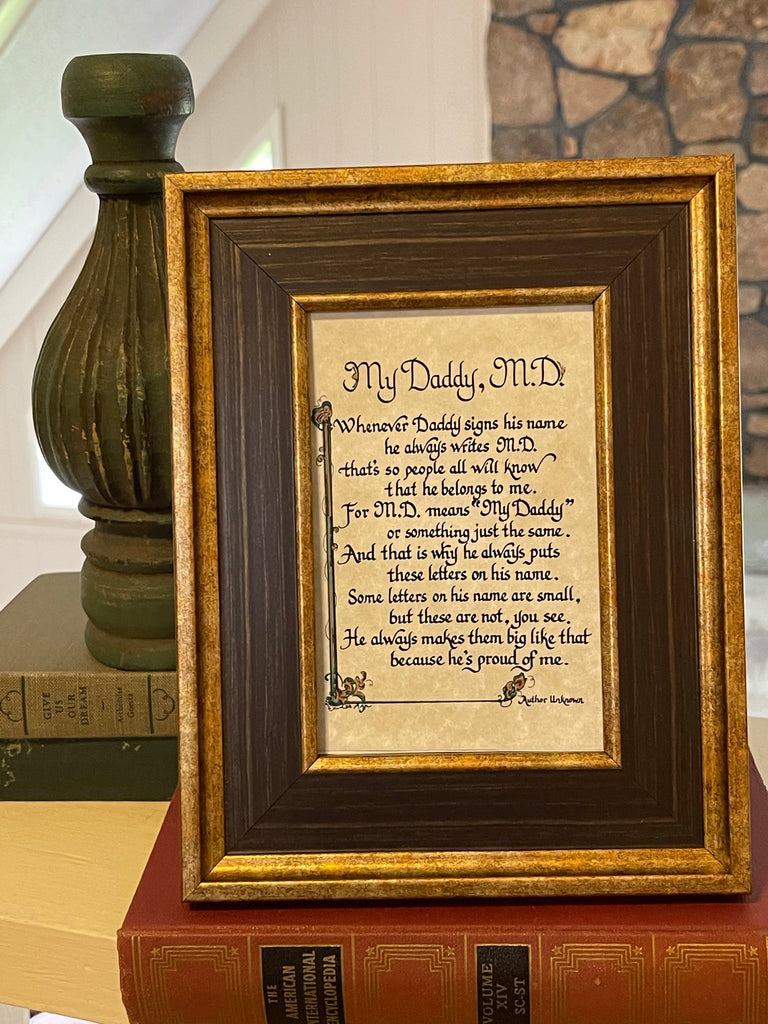 My Daddy, M.D.
Whenever Daddy signs his name
he always writes M.D.
that's so people all will know
that he belongs to me.
For M.D. means "My Daddy"
or something just the same.
And that is why he always puts
these letters on his name.
Some letters on his name are small,
but these are not, you see.
He always makes them big like that
because he's proud of me.
Author Unknown
GIVE
US
OUR
DREAM
Arthemise
Goertz
THE
AMERICAN
INTERNATIONAL
ENCYCLOPEDIA
VOLUME
XIV
SC-ST